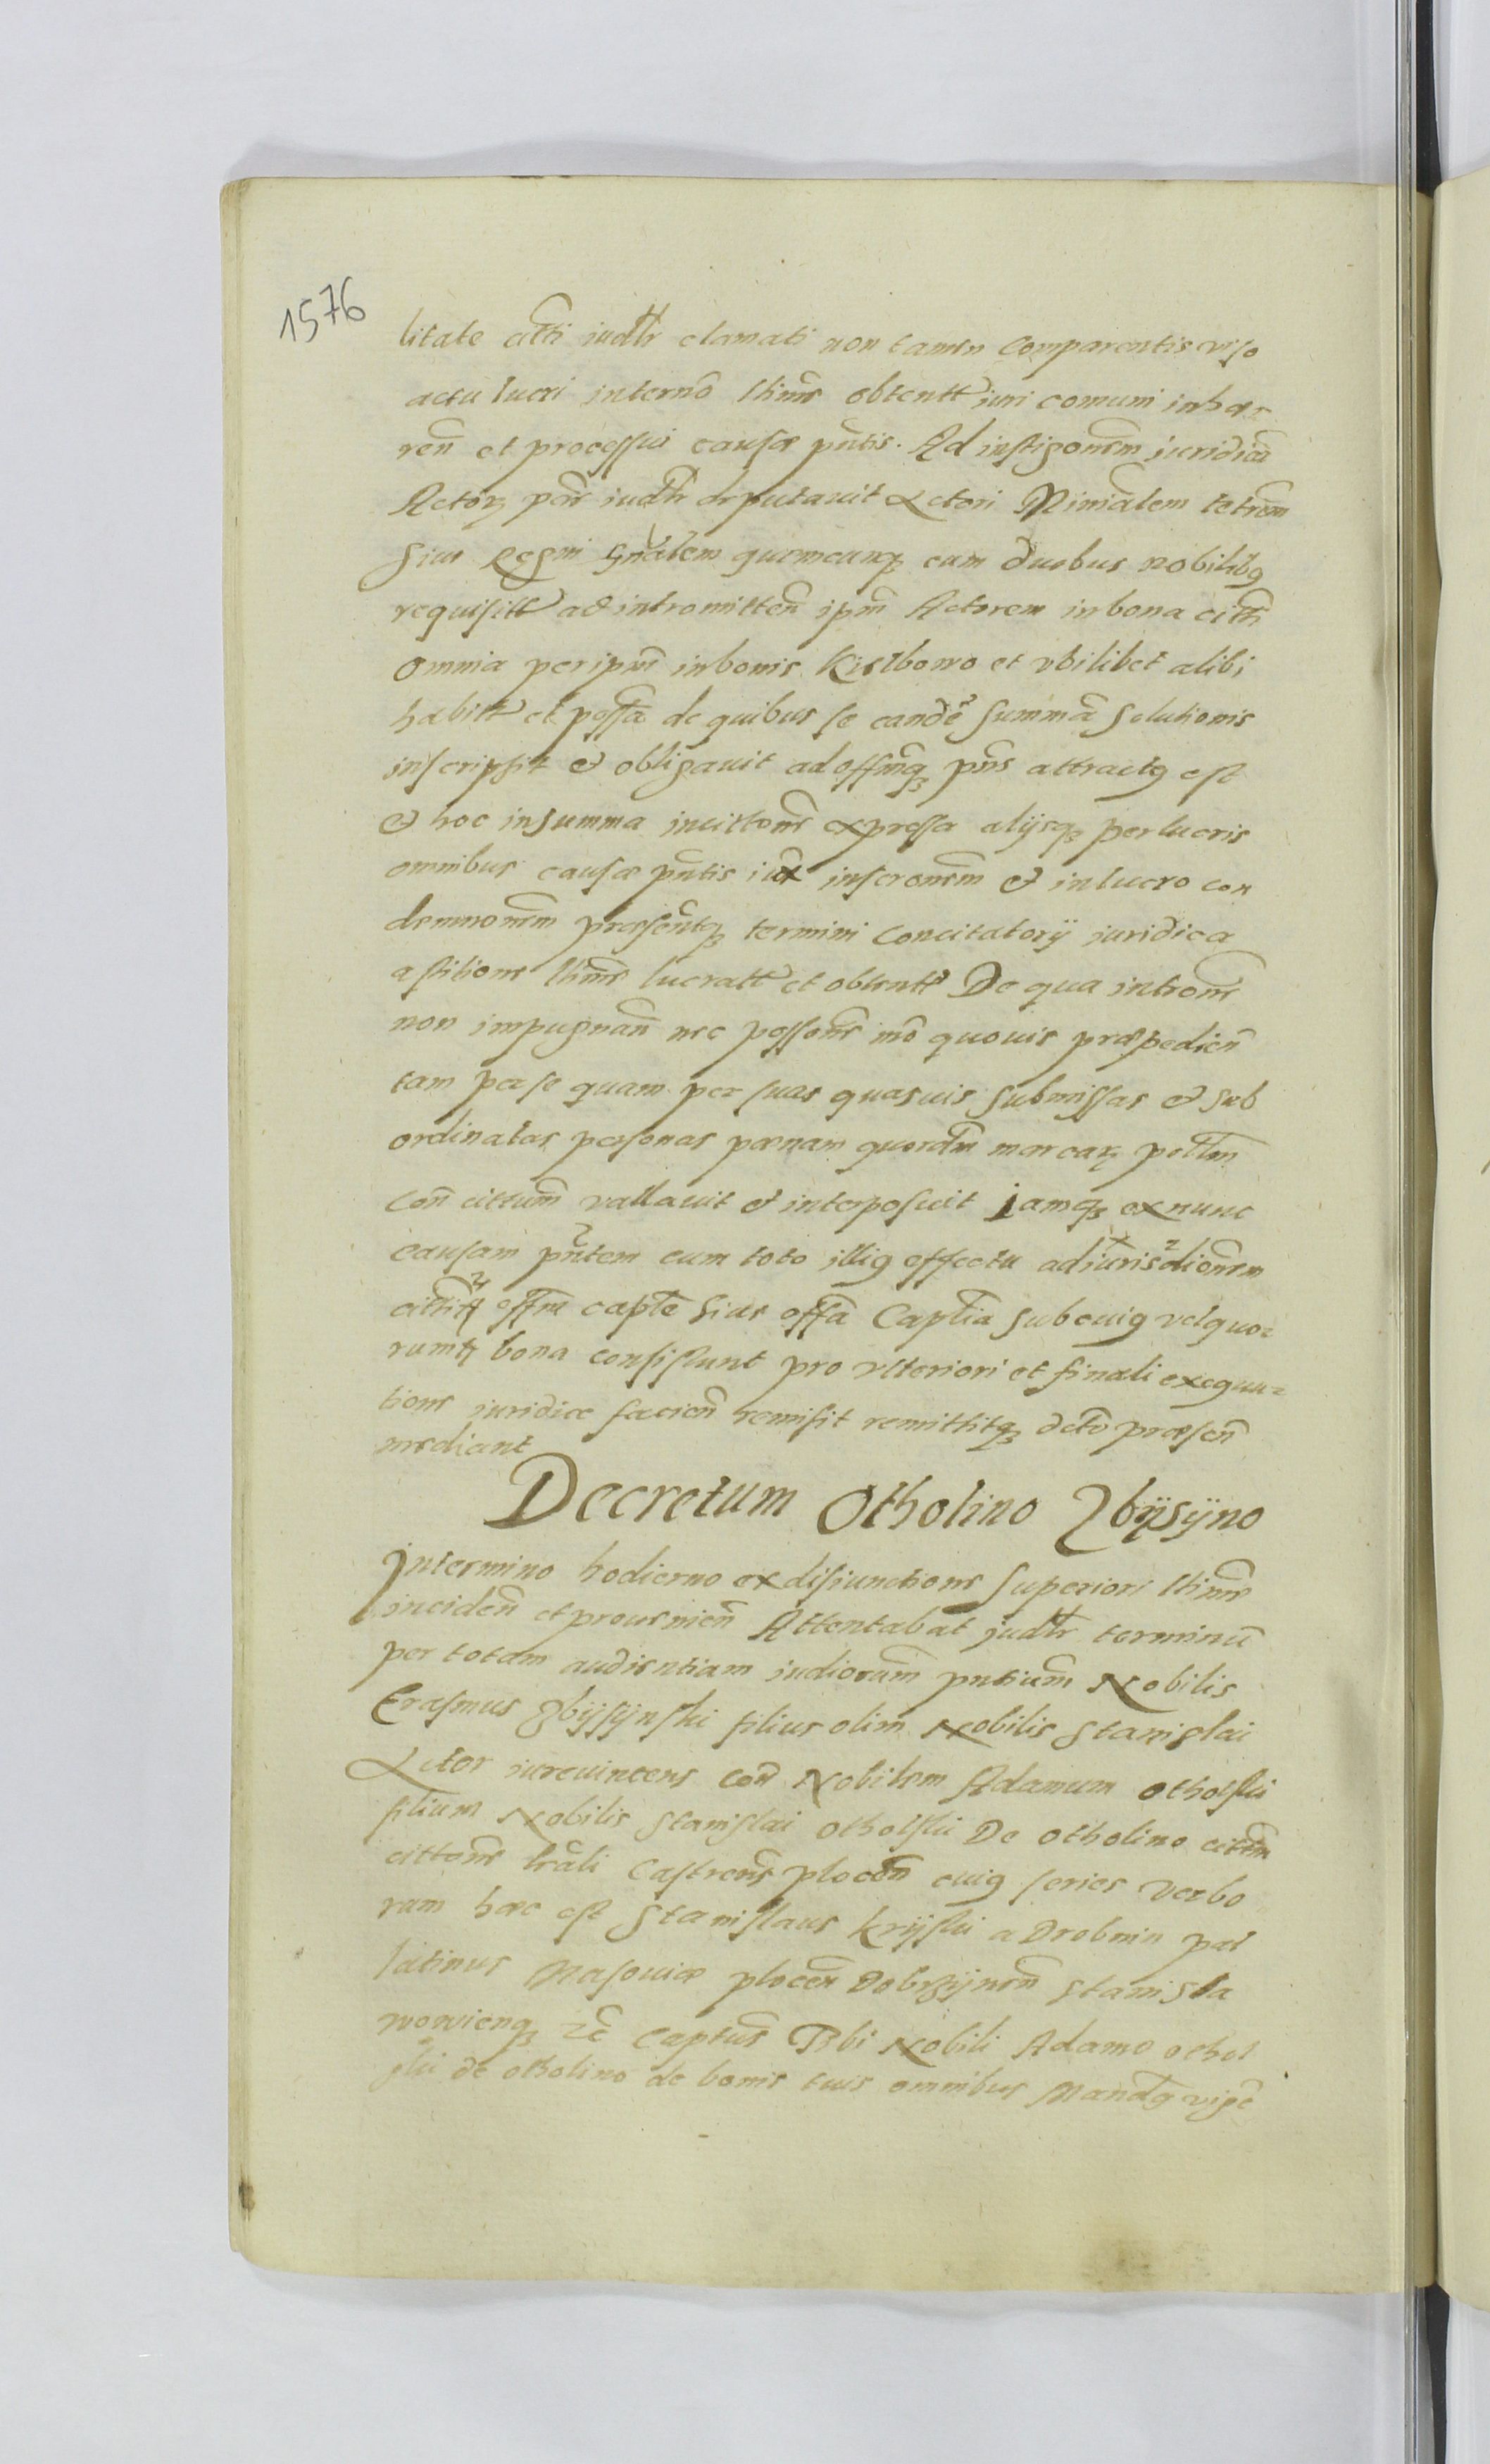 1576
litate citti iudtr clamati non tamen Comparentis viso
actu lucri interno ltimе obtentt iuri comuni inhæ-
ren et processui causæ pntis. Ad instigonem iuridica
Actorꝫ pnr iudtr deputauit Actori Minialem tetrem
siue Regni Gnalem quemcunqꝫ cum duobus nobilibꝯ
requisitt ad intromitten ipm Actorem in bona citti
omnia per ipum in bonis Kielbowo et vbilibet alibi
habitt et possa de quibus se eande summa solutionis
inscripsit et obligauit ad offmqꝫ pns attractꝯ est
et hoc in summa in cittone expressa alijsqꝫ per lucris
omnibus causæ pntis iux inscronem et in lucro con
demnonem præsentqꝫ termini Concitatorij iuridica
astitione ltime lucratt et obtentt De qua introne
non impugnan nec possone mo quouis præpedien
tam per se quam per suas quasuis submissas et sub
ordinatas personas pænam quordm marcarꝫ pettm
Con cittum vallauit et interposuit jamqꝫ ex nunc
causam pntem cum toto illiꝯ effectu ad iurisdionem
citti offm capte siue offa Captia sub cuiꝯ vel quo-
rum bona consistunt pro vlteriori et finali exequu-
tione iuridice facien remisit remittitqꝫ dcto præsen
mediant
Decretum Otholino Zbijsijno
Jn termino hodierno ex disiunctione superiori ltime
inciden et prouenien Attentabat judtr terminu
per totam audientiam iudiorum pntium Nobilis
Erasmus Zbijsijnski filius olim Nobilis Stanislai
Actor iureuincens con Nobilem Adamum Otholski
filium Nobilis Stanislai Otholski De Otholino cittm
cittone lrali Castrens plocen cuiꝯ series verbo
rum hæc est Stanislaus Krijski a Drobnin pal
latinus Masouiæ plocen Dobrzijnen Stanisla
wowienqꝫ zc Captus Tibi Nobili Adamo Othol
ski de Otholino de bonis tuis omnibus Mandꝯ vige